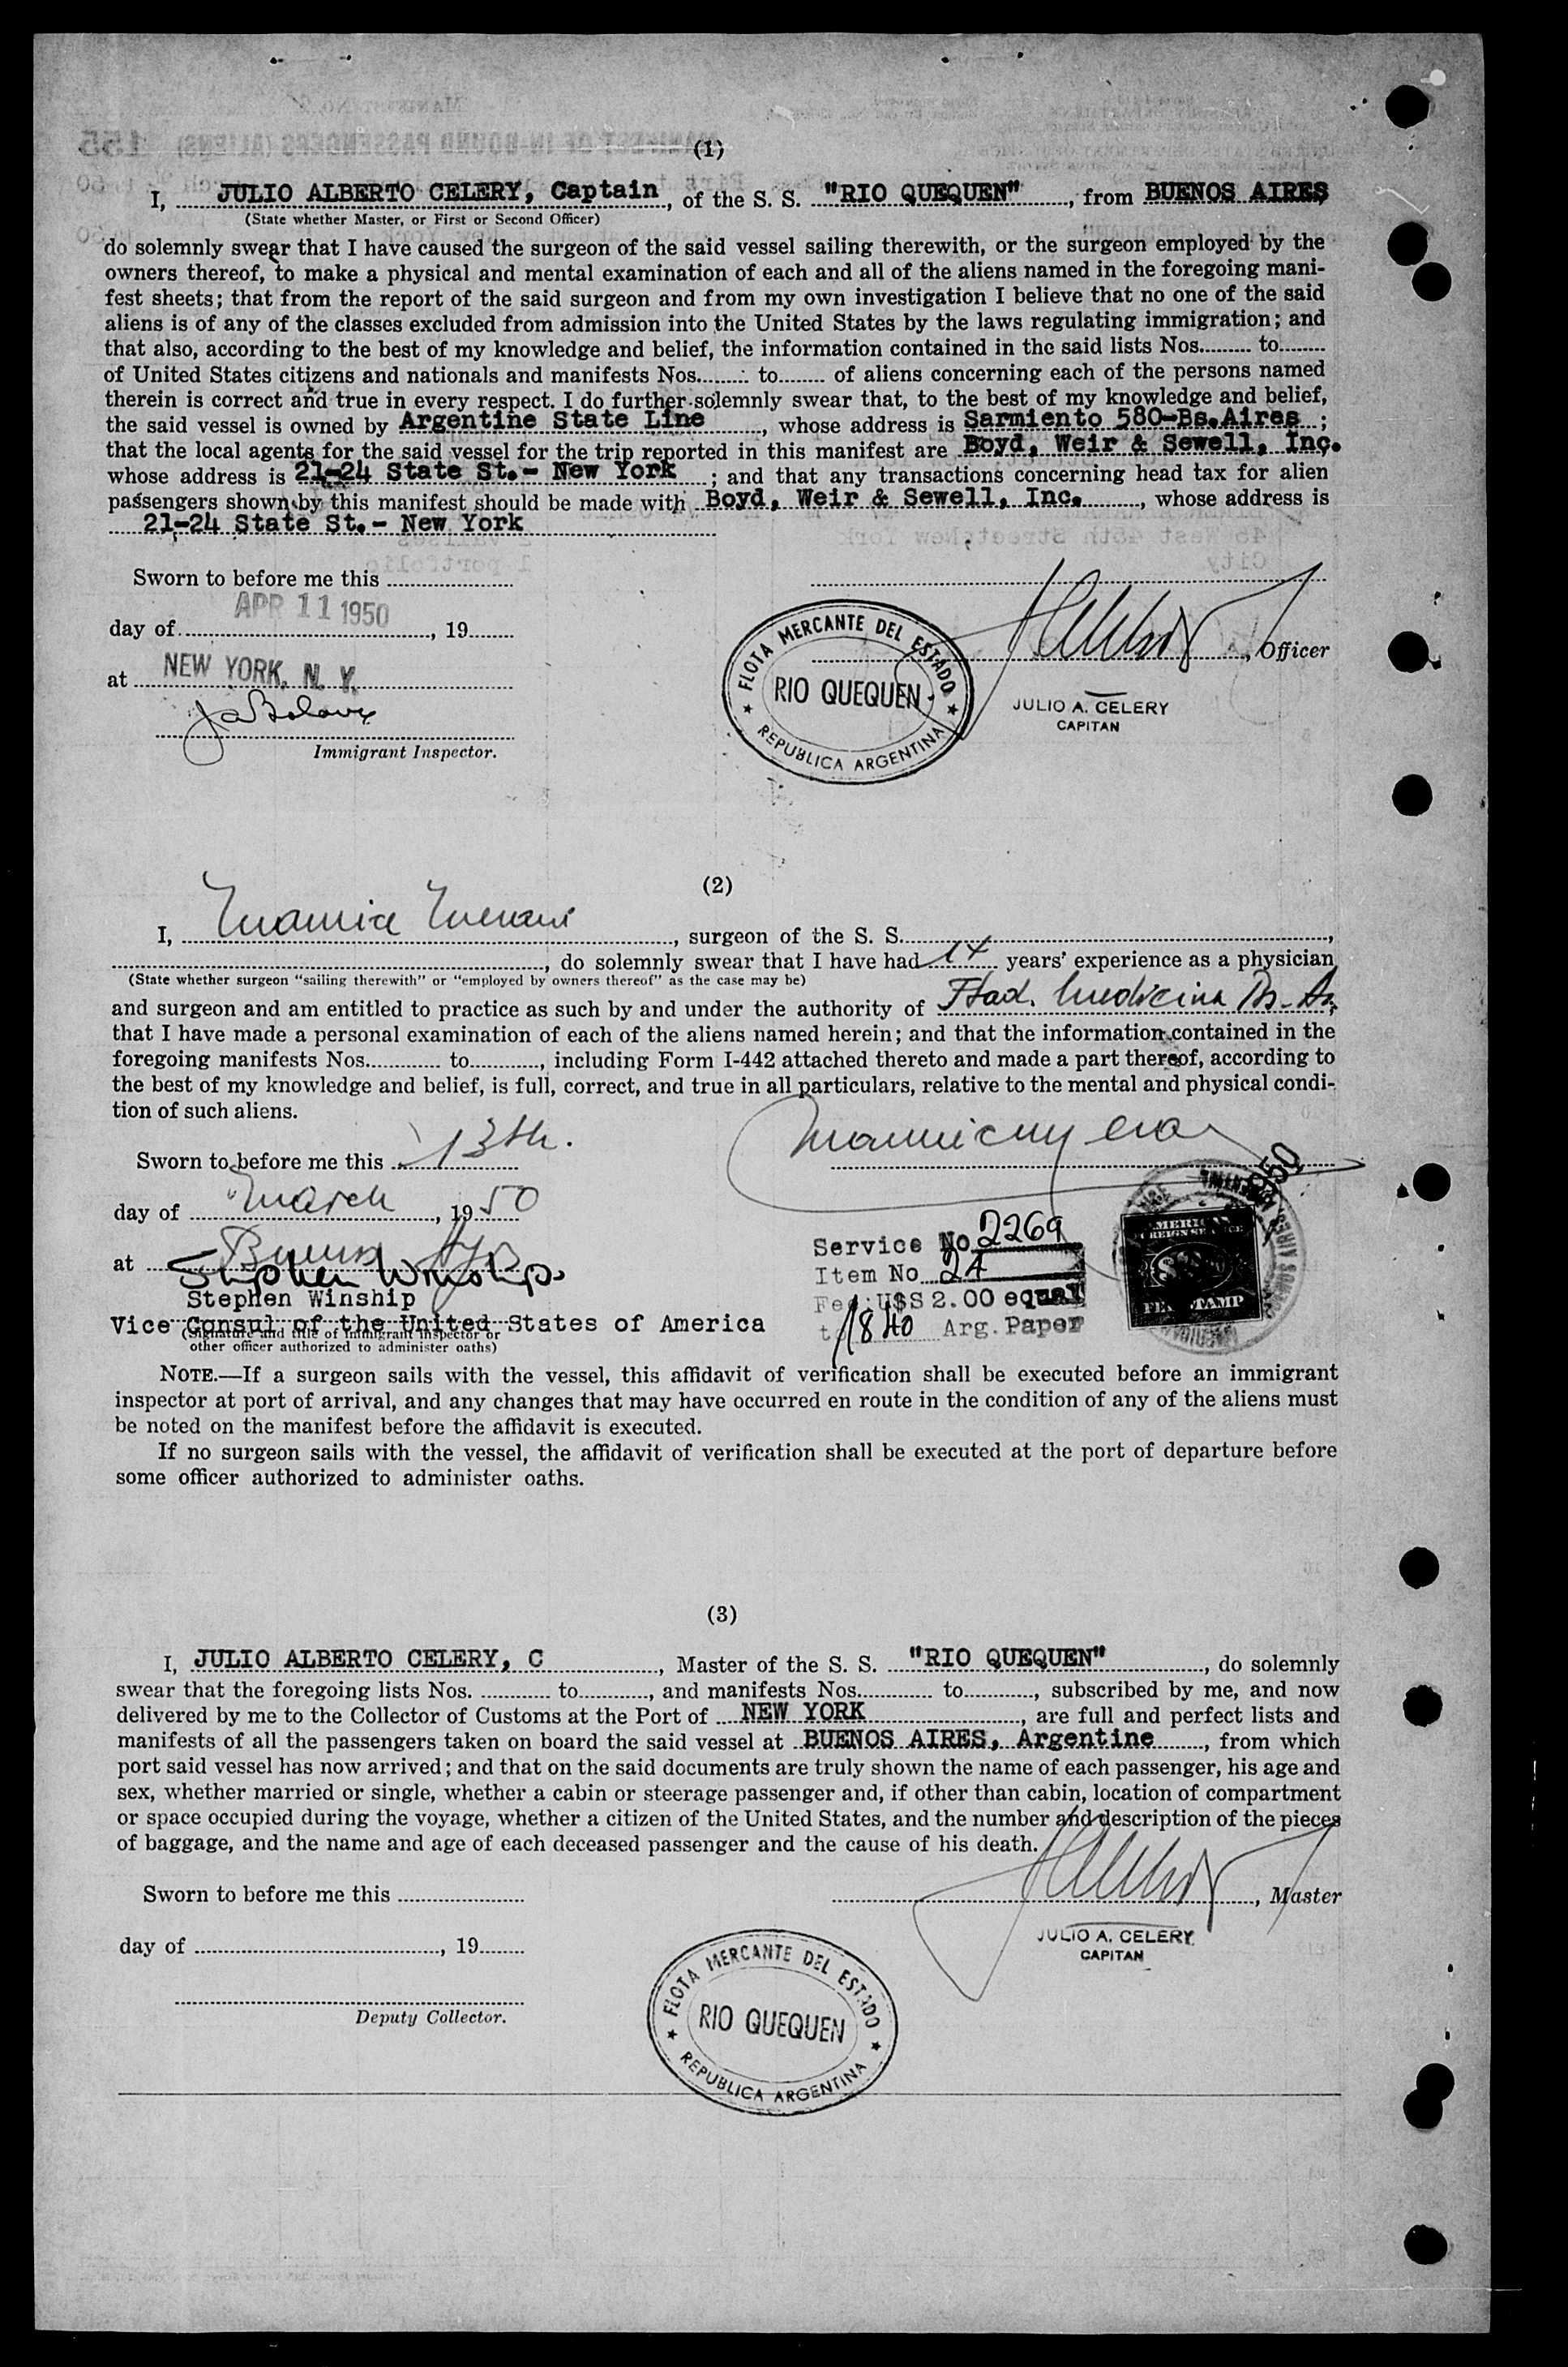 (1)
I, JULIO ALBERTO CELERY, Captain, of the S. S. "RIO QUEQUEN", from BUENOS AIRES
(State whether Master, or First or Second Officer)
do solemnly swear that I have caused the surgeon of the said vessel sailing therewith, or the surgeon employed by the
owners thereof, to make a physical and mental examination of each and all of the aliens named in the foregoing mani-
fest sheets; that from the report of the said surgeon and from my own investigation I believe that no one of the said
aliens is of any of the classes excluded from admission into the United States by the laws regulating immigration; and
that also, according to the best of my knowledge and belief, the information contained in the said lists Nos. to
of United States citizens and nationals and manifests Nos. to of aliens concerning each of the persons named
therein is correct and true in every respect. I do further solemnly swear that, to the best of my knowledge and belief,
the said vessel is owned by Argentine State Line, whose address is Sarmiento 580-Bs.Aires;
that the local agents for the said vessel for the trip reported in this manifest are Boyd, Weir & Sewell, Inc.
whose address is 21-24 State St.- New York; and that any transactions concerning head tax for alien
passengers shown by this manifest should be made with Boyd, Weir & Sewell, Inc., whose address is
21-24 State St.- New York
Sworn to before me this
APR 11 1950
day of, 19
, Officer
at NEW YORK, N. Y.
FLOTA MERCANTE DEL ESTADO
RIO QUEQUEN
REPUBLICA ARGENTINA
JULIO A. CELERY
CAPITAN
Immigrant Inspector.
(2)
I, , surgeon of the S. S. ,
, do solemnly swear that I have had 14 years' experience as a physician
(State whether surgeon "sailing therewith" or "employed by owners thereof" as the case may be)
and surgeon and am entitled to practice as such by and under the authority of Medicina Bs. As,
that I have made a personal examination of each of the aliens named herein; and that the information contained in the
foregoing manifests Nos. to, including Form I-442 attached thereto and made a part thereof, according to
the best of my knowledge and belief, is full, correct, and true in all particulars, relative to the mental and physical condi-
tion of such aliens.
Sworn to before me this 13th.
day of March, 1950
at Buenos
Stephen Winship
Stephen Winship
Vice Consul of the United States of America
(Signature and title of immigrant inspector or
other officer authorized to administer oaths)
Service No 2269
Item No. 24
Fee: U$S 2.00 equal
to 1840 Arg. Paper
AMERICAN
FOREIGN SERVICE
FEE STAMP
NOTE.—If a surgeon sails with the vessel, this affidavit of verification shall be executed before an immigrant
inspector at port of arrival, and any changes that may have occurred en route in the condition of any of the aliens must
be noted on the manifest before the affidavit is executed.
If no surgeon sails with the vessel, the affidavit of verification shall be executed at the port of departure before
some officer authorized to administer oaths.
(3)
I, JULIO ALBERTO CELERY, C, Master of the S. S. "RIO QUEQUEN", do solemnly
swear that the foregoing lists Nos. to, and manifests Nos. to, subscribed by me, and now
delivered by me to the Collector of Customs at the Port of NEW YORK, are full and perfect lists and
manifests of all the passengers taken on board the said vessel at BUENOS AIRES, Argentine, from which
port said vessel has now arrived; and that on the said documents are truly shown the name of each passenger, his age and
sex, whether married or single, whether a cabin or steerage passenger and, if other than cabin, location of compartment
or space occupied during the voyage, whether a citizen of the United States, and the number and description of the pieces
of baggage, and the name and age of each deceased passenger and the cause of his death.
Sworn to before me this
, Master
day of, 19
JULIO A. CELERY
CAPITAN
Deputy Collector.
FLOTA MERCANTE DEL ESTADO
RIO QUEQUEN
REPUBLICA ARGENTINA